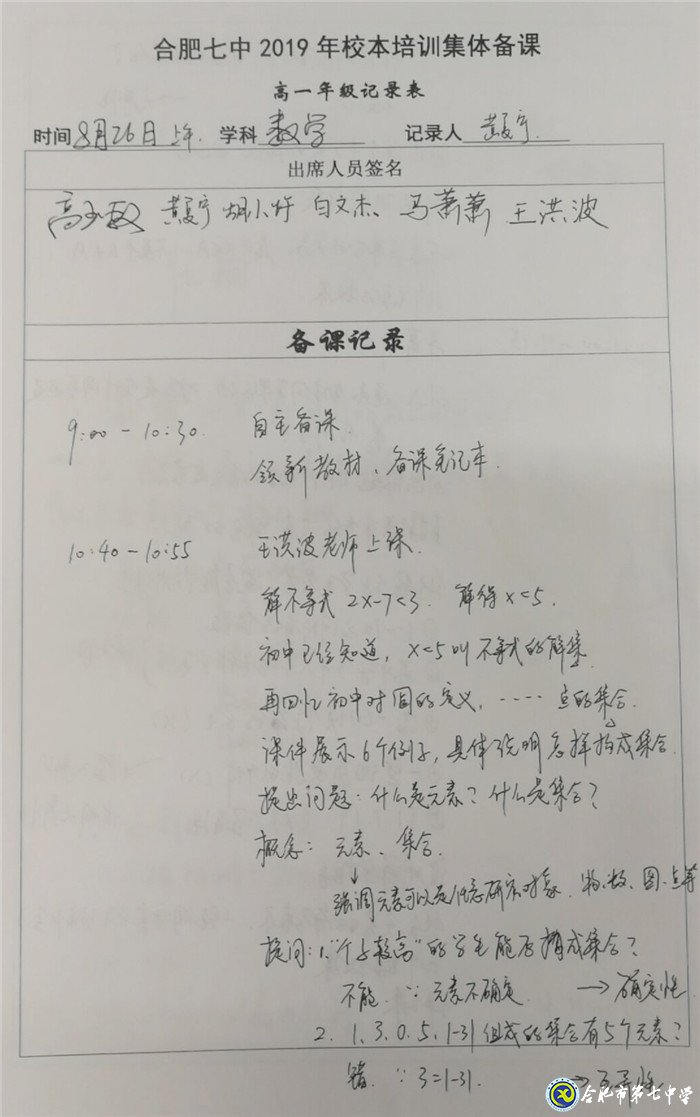 合肥七中 2019 年校本培训集体备课
高一年级记录表
时间 8月26日 上午. 学科 数学 记录人
出席人员签名
白文杰、马萧萧 王洪波
备课记录
9:00 - 10:30. 自主备课.
领新教材、备课笔记本.
10:40 - 10:55 王洪波老师上课.
解不等式 2x-7<3. 解得 x<5.
初中已经知道, x<5叫不等式的解集.
再回忆初中对圆的定义, ‥‥ 点的集合.
课件展示6个例子, 具体说明怎样构成集合.
提出问题: 什么是元素? 什么是集合?
概念: 元素、集合.
↓
强调元素可以是任意研究对象. 物、数、图、点等
提问: 1. "个子较高"的学生能否构成集合?
不能. ∵ 元素不确定. → 确定性
2. 1、3、0、5、|-3|组成的集合有5个元素?
错. ∵ 3=|-3|. → 互异性
合肥市第七中学